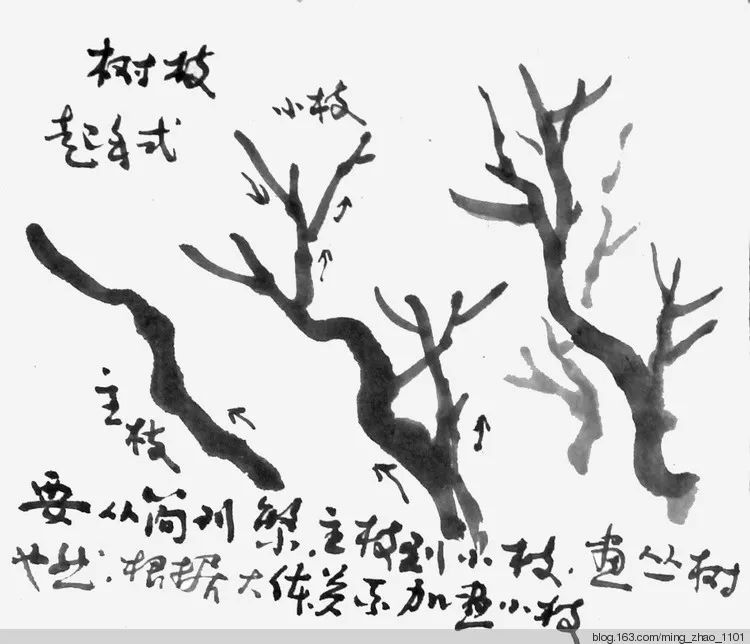 树枝
起手式
小枝
主枝
要从简到繁.主枝到小枝.画丛树
也此.根据大体关系加画小枝
blog.163.com/ming_zhao_1101